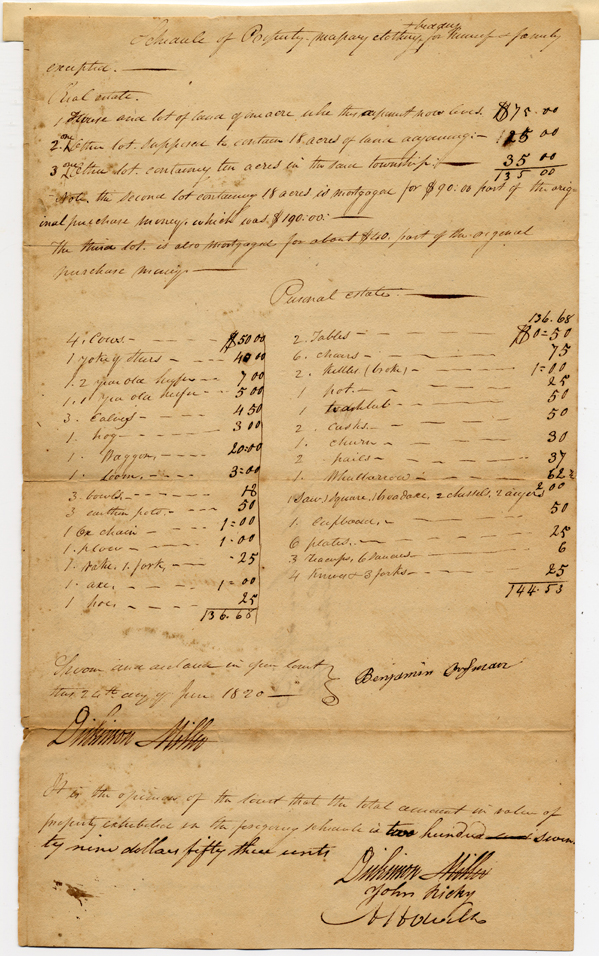 + bedding
Schedule of Property. necessary clothing for himself & family
excepted.
Real estate.
1 House and lot of land of one acre where this applicant now lives. $75.00
one
2. other lot. supposed to contain 18 acres of land adjoining:- 25 00
one
3 other lot. containing ten acres in the same township:- 35 00
135 00
Note. the second lot containing 18 acres is mortgaged for $90:00 part of the orig-
inal purchase money. which was $190:00:-
The third lot. is also mortgaged for about $40. part of the original
purchase money.
Personal estate.
4. Cows. $50 00
1. yoke of steers 40 00
1. 2 year old heifer 7 00
1. 1 year old heifer 5 00
3. Calves 4 50
1. hog 3 00
1. Waggon, 20:00
1. loom, 3=00
3. bowls 18
3 earthen pots. 50
1 Ox chain 1=00
1. plow 1.00
1. rake, 1. fork, 25
1. axe, 1=00
1 hoe, 25
136.68
136.68
2. Tables $0=50
6. chairs 75
2. kettles (broke) 1=00
1 pot. 25
1 washtub 50
2. casks. 50
1. churn 30
2 pails 37
1. Wheelbarrow 62
1 saw, 1 square, 1 broadaxe, 2 chissels, 2 augers 2 00
1. Cupboard, 50
6 plates. 25
3 teacups, 6 saucers 6
4 knives & 3 forks 25
144.53
Sworn and declared in open court
this 24th day of June 1820
Benjamin
Dickinson Miller
It is the opinion of the court that the total amount in value of
property exhibited in the foregoing schedule is two hundred seven-
ty nine dollars fifty three cents
Dickinson Miller
John